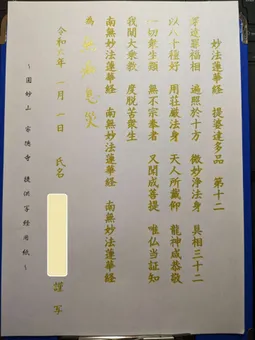 妙法蓮華経 提婆達多品 第十二
深達罪福相 遍照於十方 微妙浄法身 具相三十二
以八十種好 用荘厳法身 天人所戴仰 龍神咸恭敬
一切衆生類 無不宗奉者 又聞成菩提 唯仏当証知
我闡大乗教 度脱苦衆生
南無妙法蓮華経 南無妙法蓮華経 南無妙法蓮華経
為 無病息災
令和六年 一月 一日 氏名 謹写
~圓妙山 徳寺 提供写経用紙~